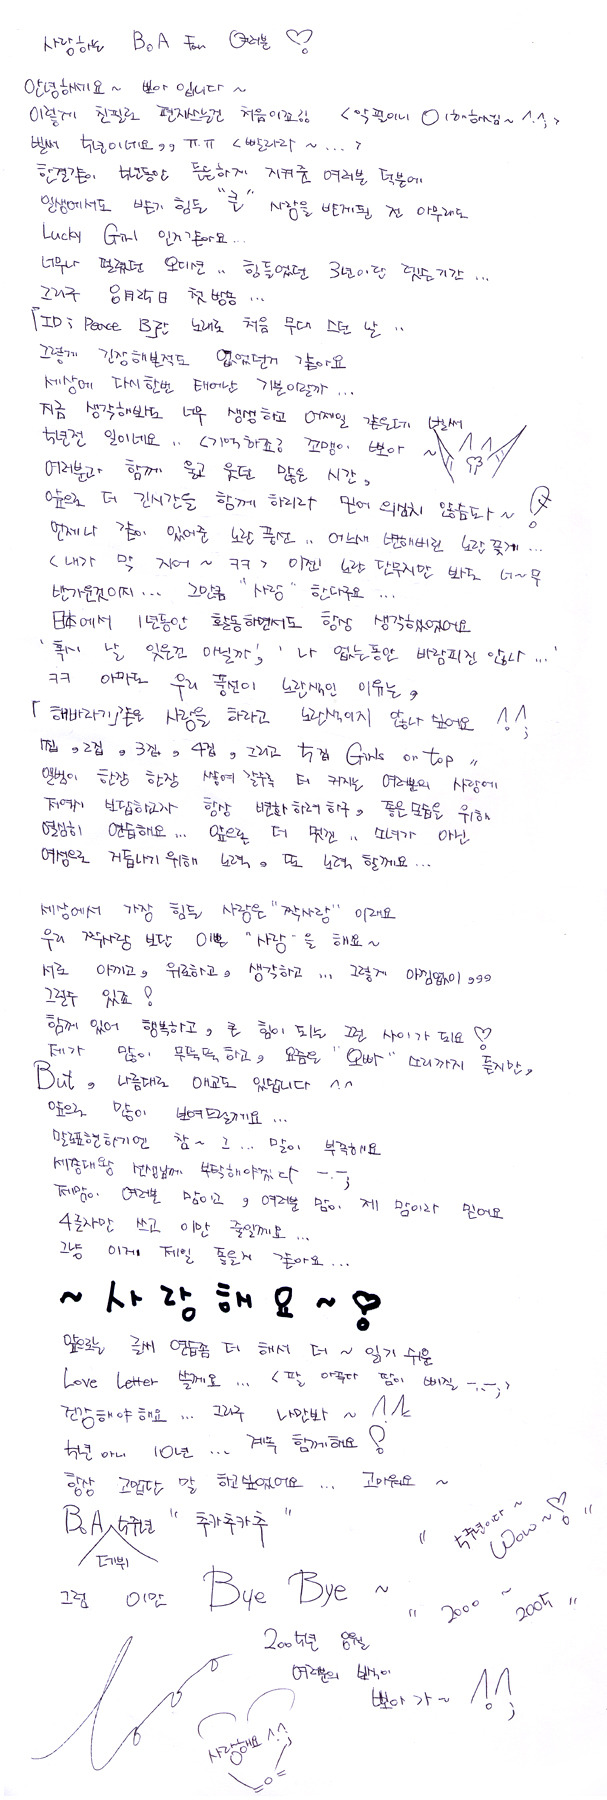 사랑하는 BoA Fan 여러분 ♡
안녕하세요~ 보아 입니다~
이렇게 친필로 편지쓰는건 처음이죠잉 <악필이니 이해하셈~^.^;>
벌써 5년이네요,, ㅠ.ㅠ <빨라라~...>
한결같이 5년동안 든든하게 지켜준 여러분 덕분에
일생에서도 받기 힘들 "큰" 사랑을 받게된 전 아무래도
Lucky Girl 인거같아요...
너무나 떨렸던 오디션.. 힘들었던 3년이란 연습기간...
그리구 8月25日 첫 방송...
「ID; Peace B」란 노래로 처음 무대 스던 날..
그렇게 긴장해본적도 없었던거 같아요
세상에 다시한번 태어난 기분이랄까...
지금 생각해봐도 너무 생생하고 어제일 같은데 벌써
5년전 일이네요.. <기억하죠? 꼬맹이 뽀아~
여러분과 함께 울고 웃던 많은 시간,
앞으로 더 긴시간을 함께 하리라 믿어 의심치 않습니다~!
언제나 같이 있어준 노란 풍선.. 어느새 변해버린 노란 꽃게...
<내가 막 지어~ ㅋㅋ> 이젠 노란 단무지만 봐도 너~무
반가운것이지... 그만큼 "사랑" 한다구요...
日本에서 1년동안 활동하면서도 항상 생각했었어요
'혹시 날 잊은건 아닐까', '나 없는동안 바람피진 않나...'
ㅋㅋ 아마도 우리 풍선이 노란색인 이유는,
「해바라기」같은 사랑을 하라고 노란색이지 않나 싶어요 ^.^;
1집, 2집, 3집, 4집, 그리고 5집 Girls on top,,
앨범이 한장 한장 쌓여 갈수록 더 커지는 여러분의 사랑에
저역시 보답하고자 항상 변화하려하구, 좋은모습을 위해
열심히 연습해요... 앞으로 더 멋진.. 소녀가 아닌
여성으로 거듭나기 위해 노력, 또 노력 할께요...
세상에서 가장 힘든 사랑은 "짝사랑" 이래요
우리 짝사랑 보단 이쁜 "사랑"을 해요~
서로 아끼고, 위로하고, 생각하고... 그렇게 아낌없이,,,
그럴수 있죠!
함께 있어 행복하고, 큰 힘이 되는 그런 사이가 되요 ♡
제가 많이 무뚝뚝하고, 요즘은 "오빠" 소리까지 듣지만,
But, 나름대로 애교도 있답니다 ^^
앞으로 많이 보여드릴께요...
말로표현하기엔 참~ 그... 말이 부족해요
세종대왕 선생님께 부탁해야겠다 -.-;
제맘이 여러분 맘이고, 여러분 맘이 제 맘이라 믿어요
4글자만 쓰고 이만 줄일께요...
그냥 이게 제일 좋을거 같아요...
~사랑해요~!
앞으로는 글씨 연습좀 더 해서 더~ 읽기 쉬운
Love Letter 쓸께요... <팔 아프다 땀이 삐질 -.-;>
건강해야해요... 그리구 나만봐~ ^^
5년 아니 10년... 계속 함께해요!
항상 고맙단 말 하고싶었어요... 고마워요~
BoA 5주년 "추카추카추"
데뷔
"5주년이다~
Wow~!"
그럼 이만 Bye Bye~
"2000 ~ 2005"
2005년 8월
여러분의 보석이
뽀아가~ ^.^;
사랑해요 ^.^;